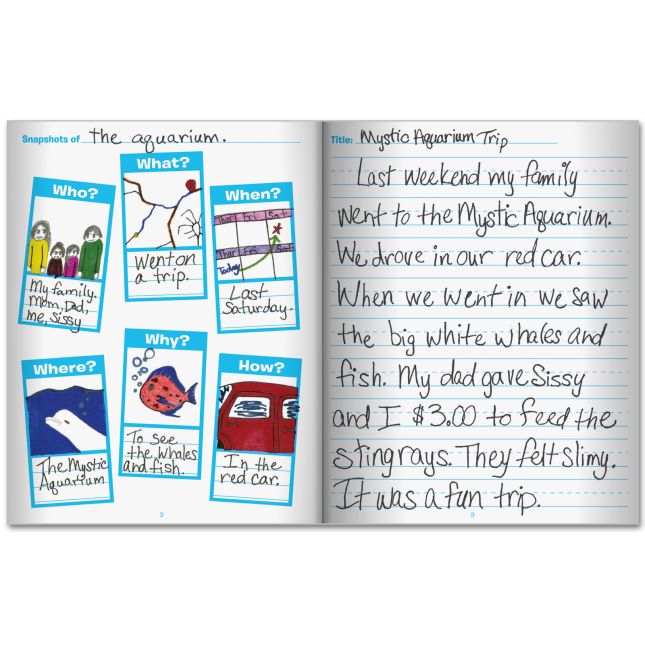 Snapshots of the aquarium.
Who?
My family.
Mom, Dad,
me, Sissy
What?
Went on
a trip.
When?
Thur Fri Sat
Thur Fri Sat
Today
Last
Saturday.
Where?
The Mystic
Aquarium
Why?
To see
the whales
and fish.
How?
In the
red car.
2
Title: Mystic Aquarium Trip
Last weekend my family
went to the Mystic Aquarium.
We drove in our red car.
When we went in we saw
the big white whales and
fish. My dad gave Sissy
and I $3.00 to feed the
stingrays. They felt slimy.
It was a fun trip.
3